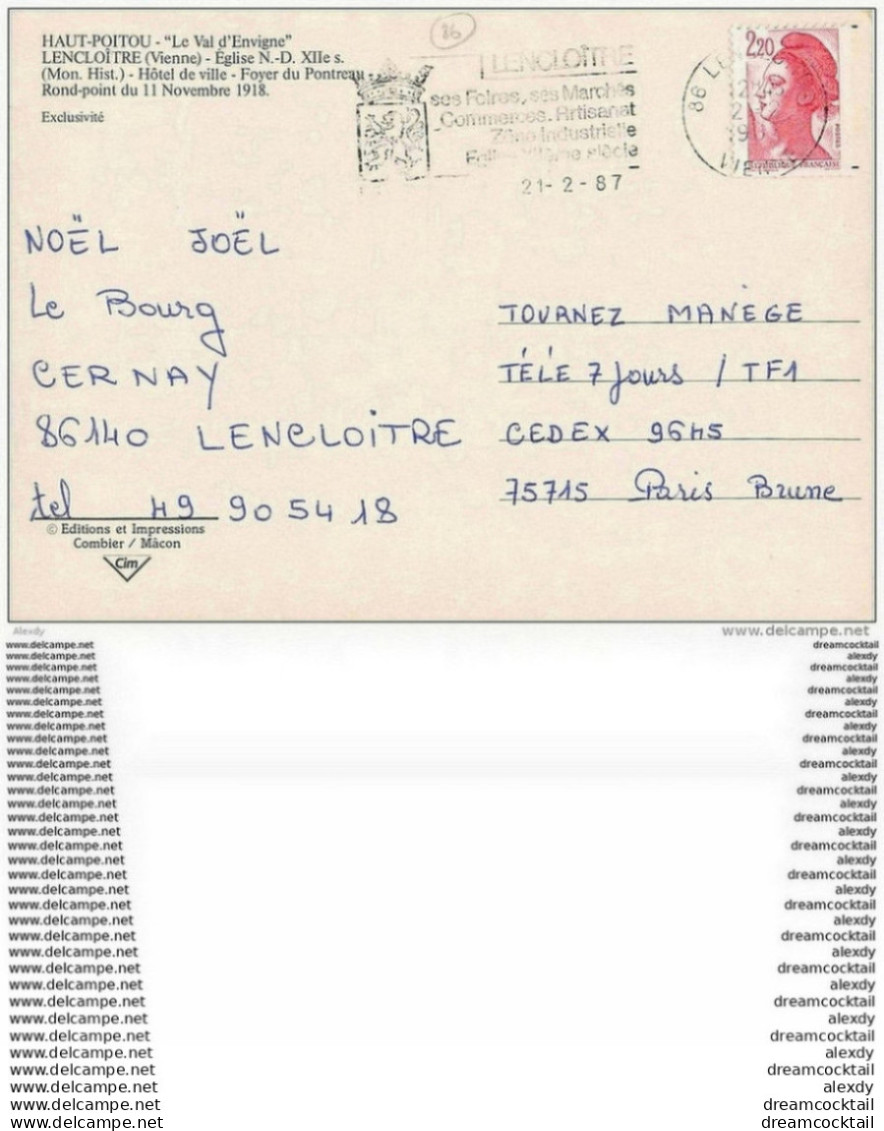 HAUT-POITOU - "Le Val d'Envigne"
LENCLOÎTRE (Vienne) - Église N.-D. XIIe s.
(Mon. Hist.) - Hôtel de ville - Foyer du Pontreau
Rond-point du 11 Novembre 1918.
Exclusivité
86
LENCLOÎTRE
ses Foires, ses Marchés
Commerces. Artisanat
Zône Industrielle
Eglise XIIème siècle
21-2-87
86
2,20
NOËL JOËL
Le Bourg
CERNAY
86140 LENCLOITRE
tel 49 90 54 18
TOURNEZ MANÈGE
TÉLÉ 7 Jours / TF1
CEDEX 9645
75715 Paris Brune
© Editions et Impressions
Combier / Mâcon
Cim
Alexdy
www.delcampe.net
www.delcampe.net dreamcocktail
www.delcampe.net alexdy
www.delcampe.net dreamcocktail
www.delcampe.net alexdy
www.delcampe.net dreamcocktail
www.delcampe.net alexdy
www.delcampe.net dreamcocktail
www.delcampe.net alexdy
www.delcampe.net dreamcocktail
www.delcampe.net alexdy
www.delcampe.net dreamcocktail
www.delcampe.net alexdy
www.delcampe.net dreamcocktail
www.delcampe.net alexdy
www.delcampe.net dreamcocktail
www.delcampe.net alexdy
www.delcampe.net dreamcocktail
www.delcampe.net alexdy
www.delcampe.net dreamcocktail
www.delcampe.net alexdy
www.delcampe.net dreamcocktail
www.delcampe.net alexdy
www.delcampe.net dreamcocktail
www.delcampe.net alexdy
www.delcampe.net dreamcocktail
www.delcampe.net alexdy
www.delcampe.net dreamcocktail
www.delcampe.net alexdy
www.delcampe.net dreamcocktail
www.delcampe.net alexdy
www.delcampe.net dreamcocktail
www.delcampe.net alexdy
www.delcampe.net dreamcocktail
www.delcampe.net dreamcocktail